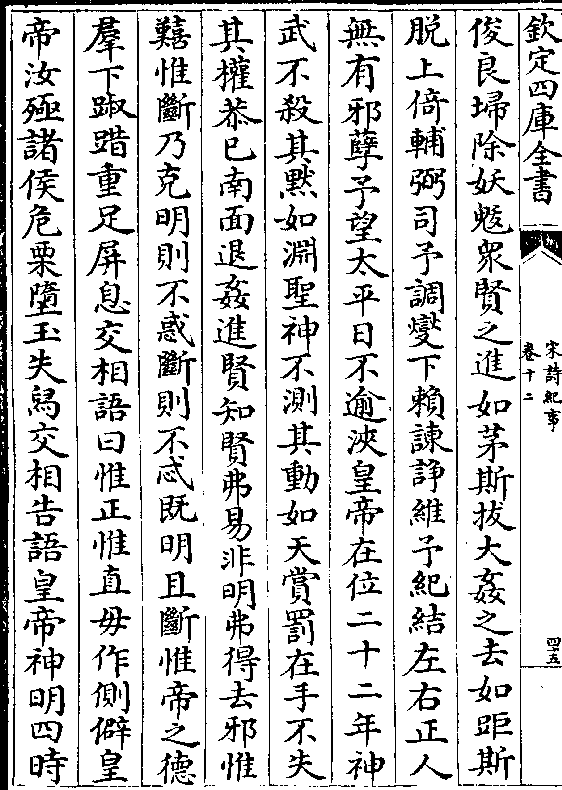 欽定四庫全書
宋詩紀事
卷十二
四十五
俊良埽除妖魃衆賢之進如茅斯拔大姦之去如距斯
脱上倚輔弼司予調燮下賴諫諍維予紀結左右正人
無有邪孽予望太平日不逾浹皇帝在位二十二年神
武不殺其黙如淵聖神不測其動如天賞罰在手不失
其權恭已南面退姦進賢知賢弗易非明弗得去邪惟
艱惟斷乃克明則不惑斷則不忒既明且斷惟帝之德
羣下踧踖重足屏息交相語曰惟正惟直毋作側僻皇
帝汝殛諸侯危栗墮玉失舄交相告語皇帝神明四時